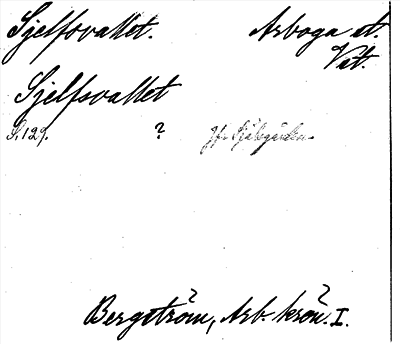 Sjelfsvallet. Arboga st.
Vät.
Sjelfsvallet
S. 129. ? Jfr
Bergström, Arb. krön. I.